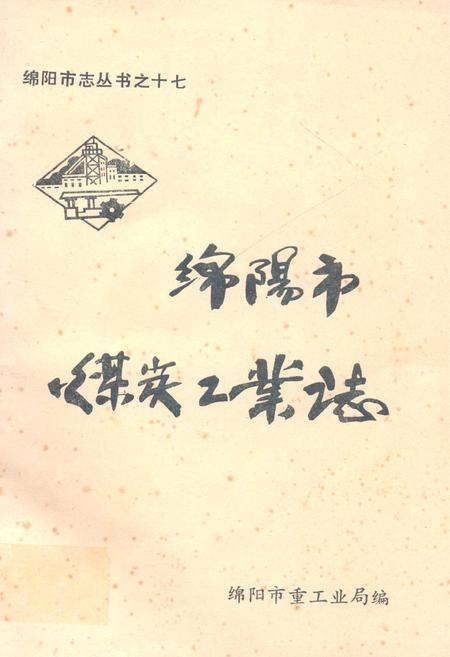 绵阳市志丛书之十七
绵陽市
煤炭工業誌
绵阳市重工业局编